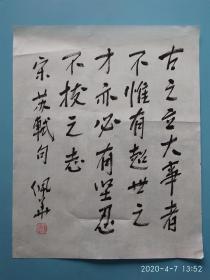 古之立大事者
不惟有超世之
才亦必有坚忍
不拔之志
宋苏轼句 佩华
2020-4-7 13:52